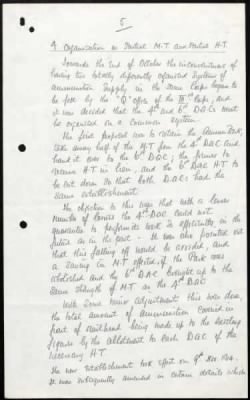 5
9 Organisation in Partial M.T. and Partial H.T.
Towards the end of October the inconvenience of
having two totally differently organised systems of
ammunition supply in the same Corps began to
be felt by the "Q" office of the Corps, and
it was decided that the 4th and 6th D.A.Cs must
be organised on a common system.
The first proposal was to retain the Ammn Park,
take away half of the M.T. from the 4th DAC and
hand it over to the 6th D.A.C; the former to
receive H.T. in lieu, and the 6th DAC H.T. to
be cut down so that both D.A.C's had the
same establishment.
The objection to this was that with a lesser
number of lorries the 4th DAC could not
guarantee to perform its work so efficiently in the
future as in the past. It was also pointed out
that this falling off would be avoided, and
a saving in M.T. effected, if the Park was
abolished and the 6th DAC brought up to the
same strength of M.T. as the 4th DAC
With some minor adjustment this was done,
the total amount of ammunition carried in
front of railhead being made up to the existing
figures by the allotment to each DAC of the
necessary H.T.
The new establishment took effect on 9th Nov.
It was subsequently amended in certain details which